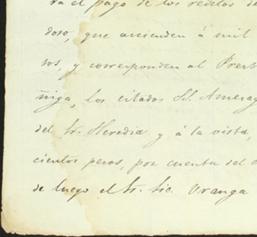 ra el pago de los reditos de
doso, que ascienden á mil
sos, y corresponden al Presb
ñiga, los citados SS. Amerag
del Sr. Heredia y á la vista,
cientos pesos, por cuenta del
de luego el Sr. Lic. Uranga